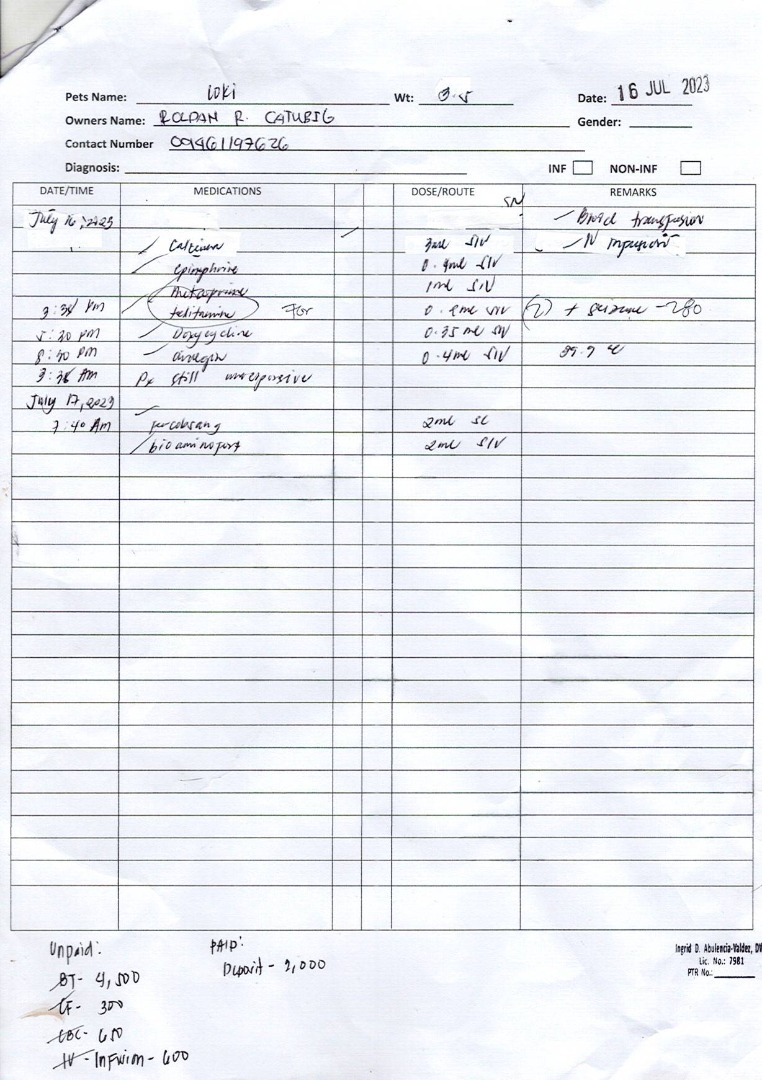 Pets Name: Loki Wt: 3.5 Date: 16 JUL 2023
Owners Name: ROLDAN R. CATUBIG Gender:
Contact Number 09461197626
Diagnosis: INF NON-INF
DATE/TIME MEDICATIONS DOSE/ROUTE REMARKS
July 16, 2023 Blood transfusion
Calcium 3ml SIV IV infusion
epinephrine 0.4ml SIV
1ml SIV
3:38 PM For SIV (2) + seizure - 280
5:30 PM Doxycycline 0.35 ml SIV
8:30 PM 0.4ml SIV 39.9 °C
3:38 AM Px still unresponsive
July 17, 2023
7:40 AM 2ml SC
bioaminofort 2ml SIV
Unpaid: PAID:
BT- 4,500 Deposit - 2,000
CF- 300
CBC- 650
IV- Infusion - 600
Ingrid D. Abulencia-Valdez, DV
Lic. No.: 7981
PTR No.: